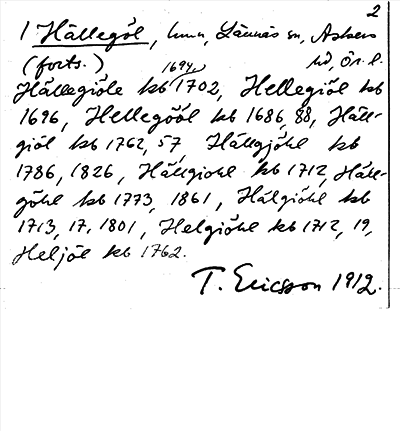 2
1 Hällegöl, hmn, Lännäs sn, Askers
(forts.) hd, Ör. l.
Hällegiöle kb 1694, 1702, Hellegiöl kb
1696, Hellegööl kb 1686, 88, Häll-
giöl kb 1762, 57, Hällgjöhl kb
1786, 1826, Hällgiöhl kb 1712, Häll-
göhl kb 1773, 1861, Hälgiöhl kb
1713, 17, 1801, Helgiöhl kb 1712, 19,
Heljöl kb 1762.
T. Ericsson 1912.